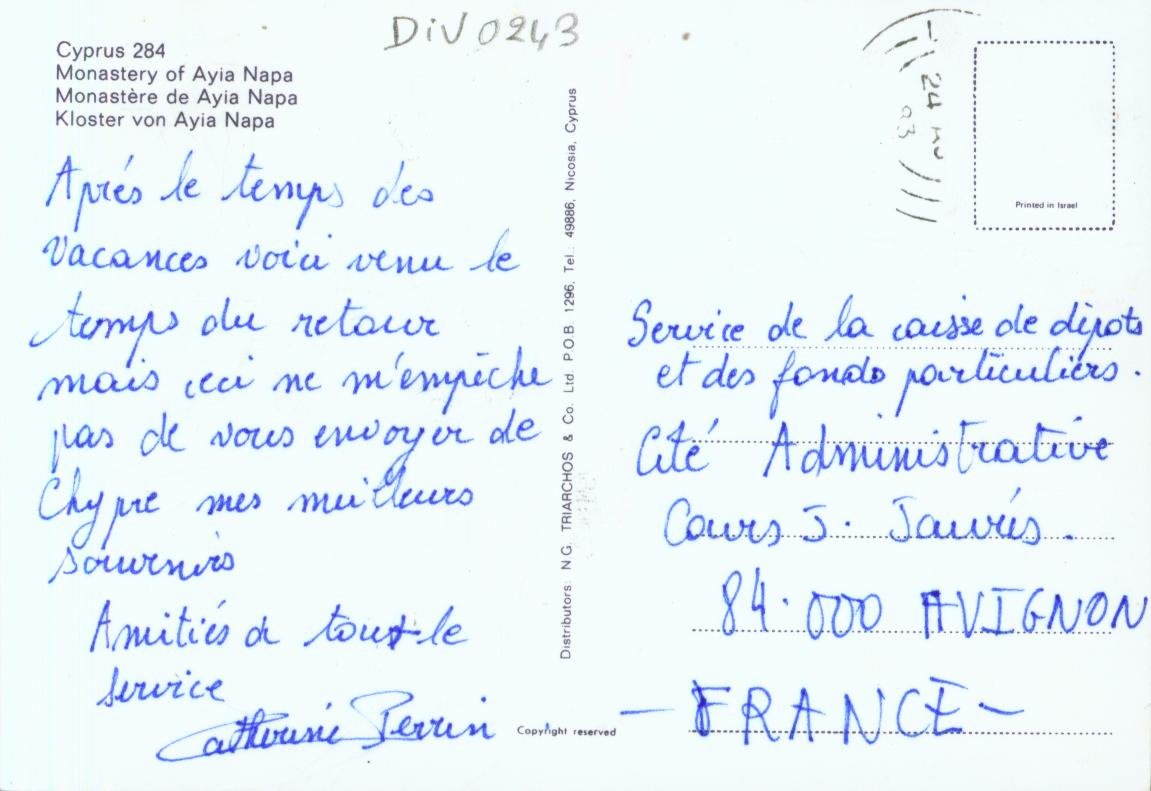 DiV 0243
Cyprus 284
Monastery of Ayia Napa
Monastère de Ayia Napa
Kloster von Ayia Napa
Aprés le temps des
Vacances voici venu le
temps du retour
mais ceci ne m'empêche
pas de vous envoyer de
Chypre mes meilleurs
souvenirs
Amitiés à tout le
service
Catherine Perrin
Distributors: N.G. TRIARCHOS & Co. Ltd. P.O.B. 1296, Tel.: 49886, Nicosia, Cyprus
Copyright reserved
24
Printed in Israel
Service de la caisse de dépots
et des fonds particuliers.
Cité Administrative
Cours J. Jaurés.
84.000 AVIGNON
- FRANCE -